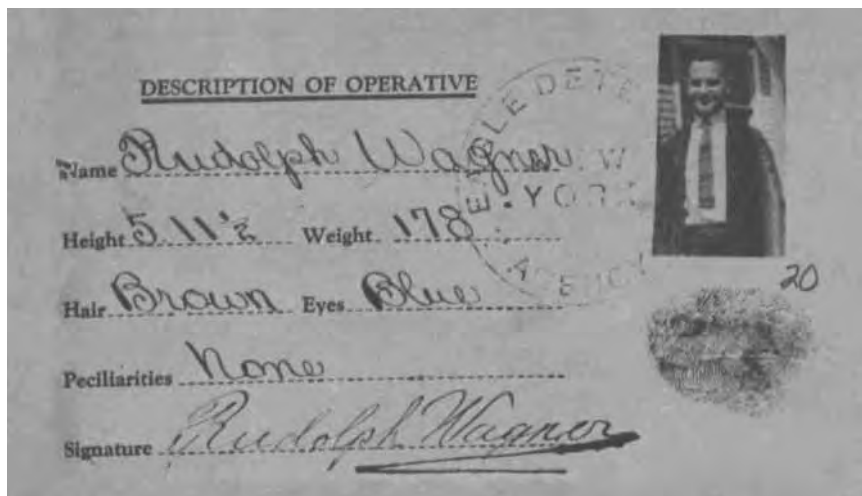 DESCRIPTION OF OPERATIVE
Name Rudolph Wagner
Height 5.11½ Weight 178
Hair Brown Eyes Blue
Peciliarities None
Signature Rudolph Wagner
20
DETE
YORK
AGENCY